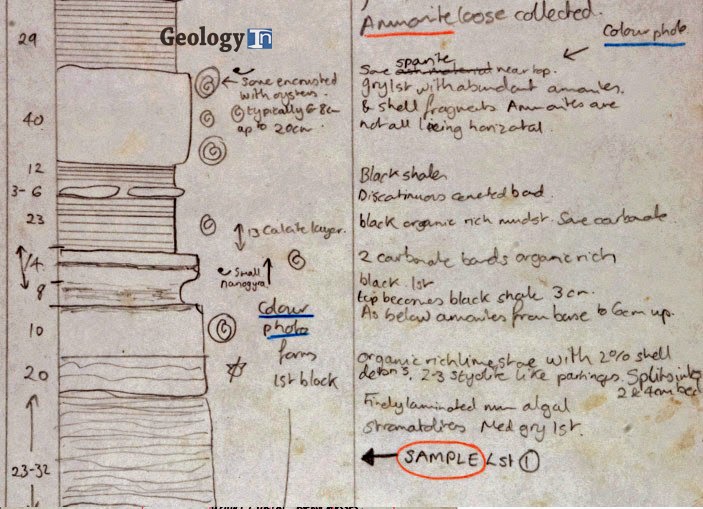 Ammonite loose collected.
Colour photo
29
Geology In
Some encrusted
with oysters.
typically 6-8cm
up to 20cm
Some sparite near top.
gry lst with abundant ammonites.
& shell fragments Ammonites are
not all lying horizontal.
40
12
Black shales
3-6
Discontinuous cemented band
23
13 Calcite layer.
black organic rich mudst. Some carbonate.
4
2 carbonate bands organic rich
Small
nanogyra
black lst
8
top becomes black shale 3cm.
As below ammonites from base to 6cm up.
Colour
photo
10
forms
lst black
organic rich limestone with 20% shell
debris. 2-3 stylolite like partings. Splits into
2 & 4cm bed
20
Finely laminated algal
stromatolites Med gry lst.
23-32
SAMPLE Lst 1